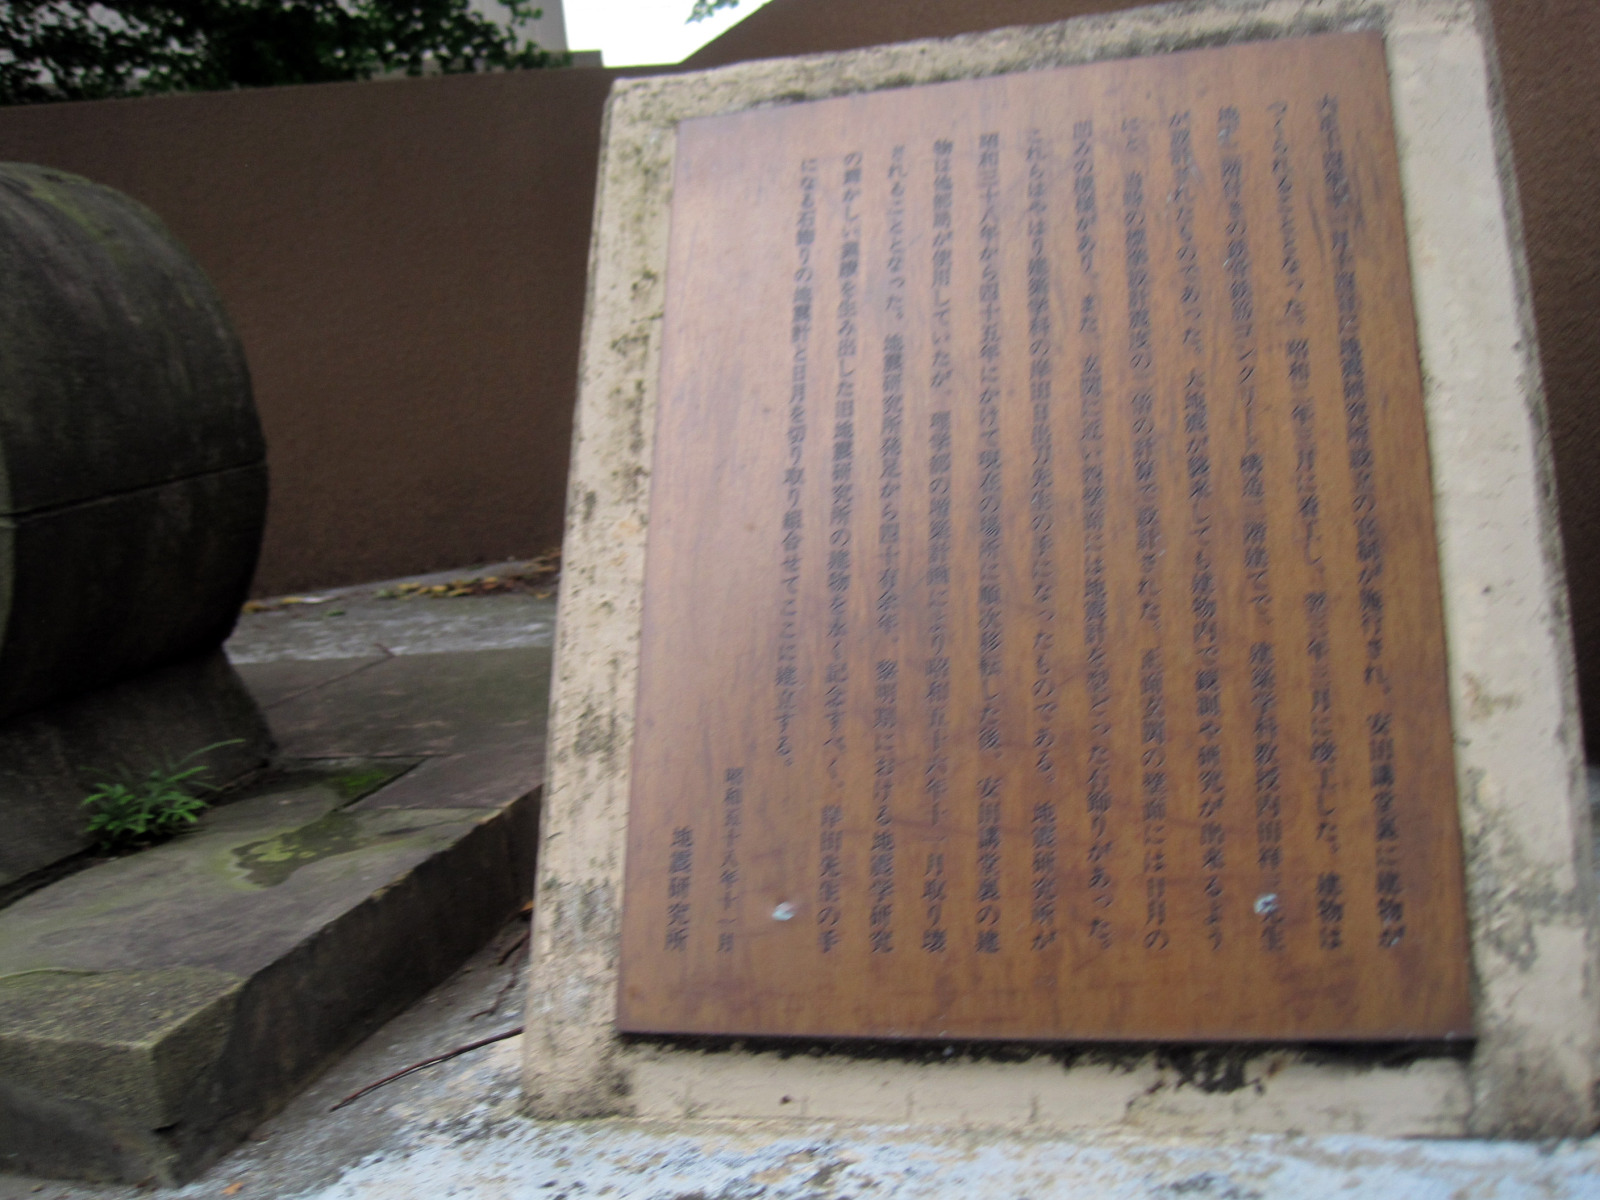 大正十四年 地震研究所設立の 公布され、安田講堂裏に建物が
つくられることとなった。昭和二年三月に着工し、翌三年三月に竣工した。建物は
鉄筋コンクリート構造二階建てで、建築学科教授内田祥三先生
が設計されたものであった。大地震が襲来しても建物内で観測や研究が出来るよう
に、 の 設計 の 倍の計算で設計された。正面玄関の壁面には日月の
があり、また、玄関に近い 壁面には地震計を型どった石飾りがあった。
これらはやはり建築学科の岸田日出刀先生の手になったものである。地震研究所が
昭和三十八年から四十五年にかけて現在の場所に順次移転した後、安田講堂裏の建
物は が使用していたが、 の建築計画により昭和五十六年十一月取り壊
されることとなった。地震研究所発足から四十有余年、黎明期における地震学研究
の輝かしい業績を生み出した旧地震研究所の建物を永く記念すべく、岸田先生の手
になる石飾りの地震計と日月を切り取り組合せてここに保存する。
昭和五十八年十一月
地震研究所